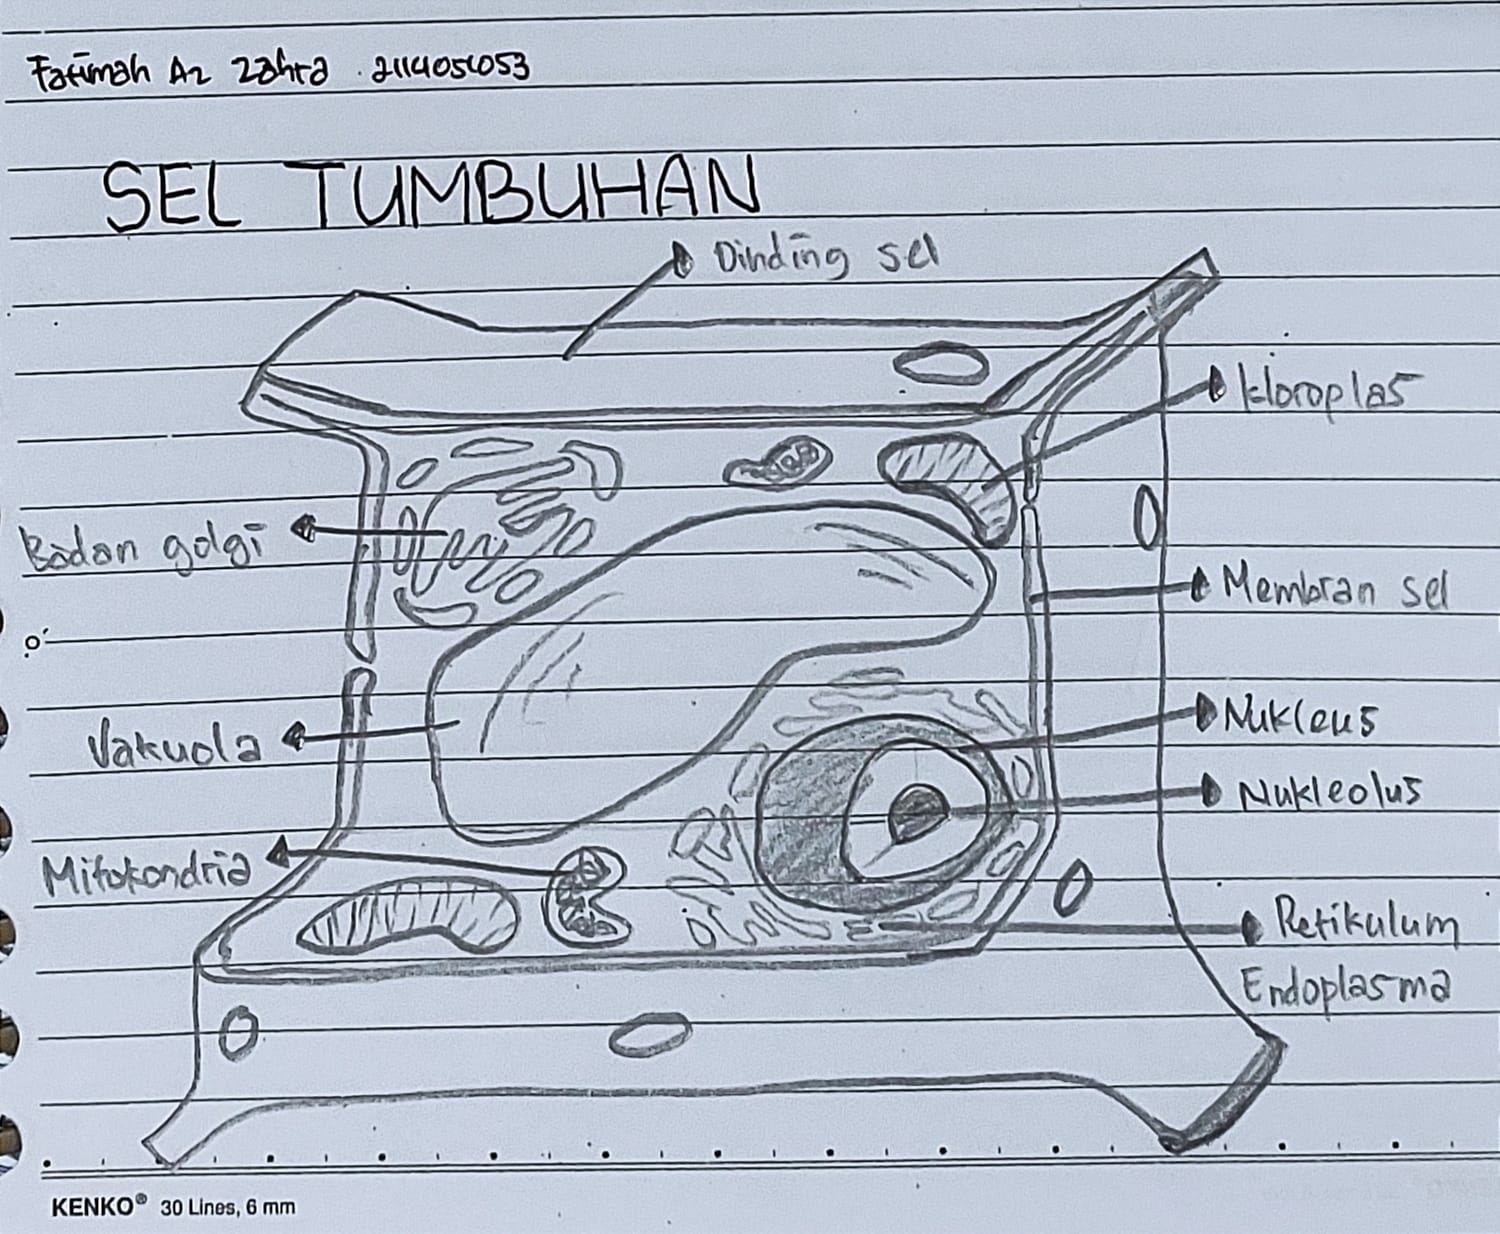 Fatimah Az Zahra 2114051053
SEL TUMBUHAN
Dinding sel
Kloroplas
Badan golgi
Membran sel
Vakuola
Nukleus
Nukleolus
Mitokondria
Retikulum
Endoplasma
KENKO® 30 Lines, 6 mm